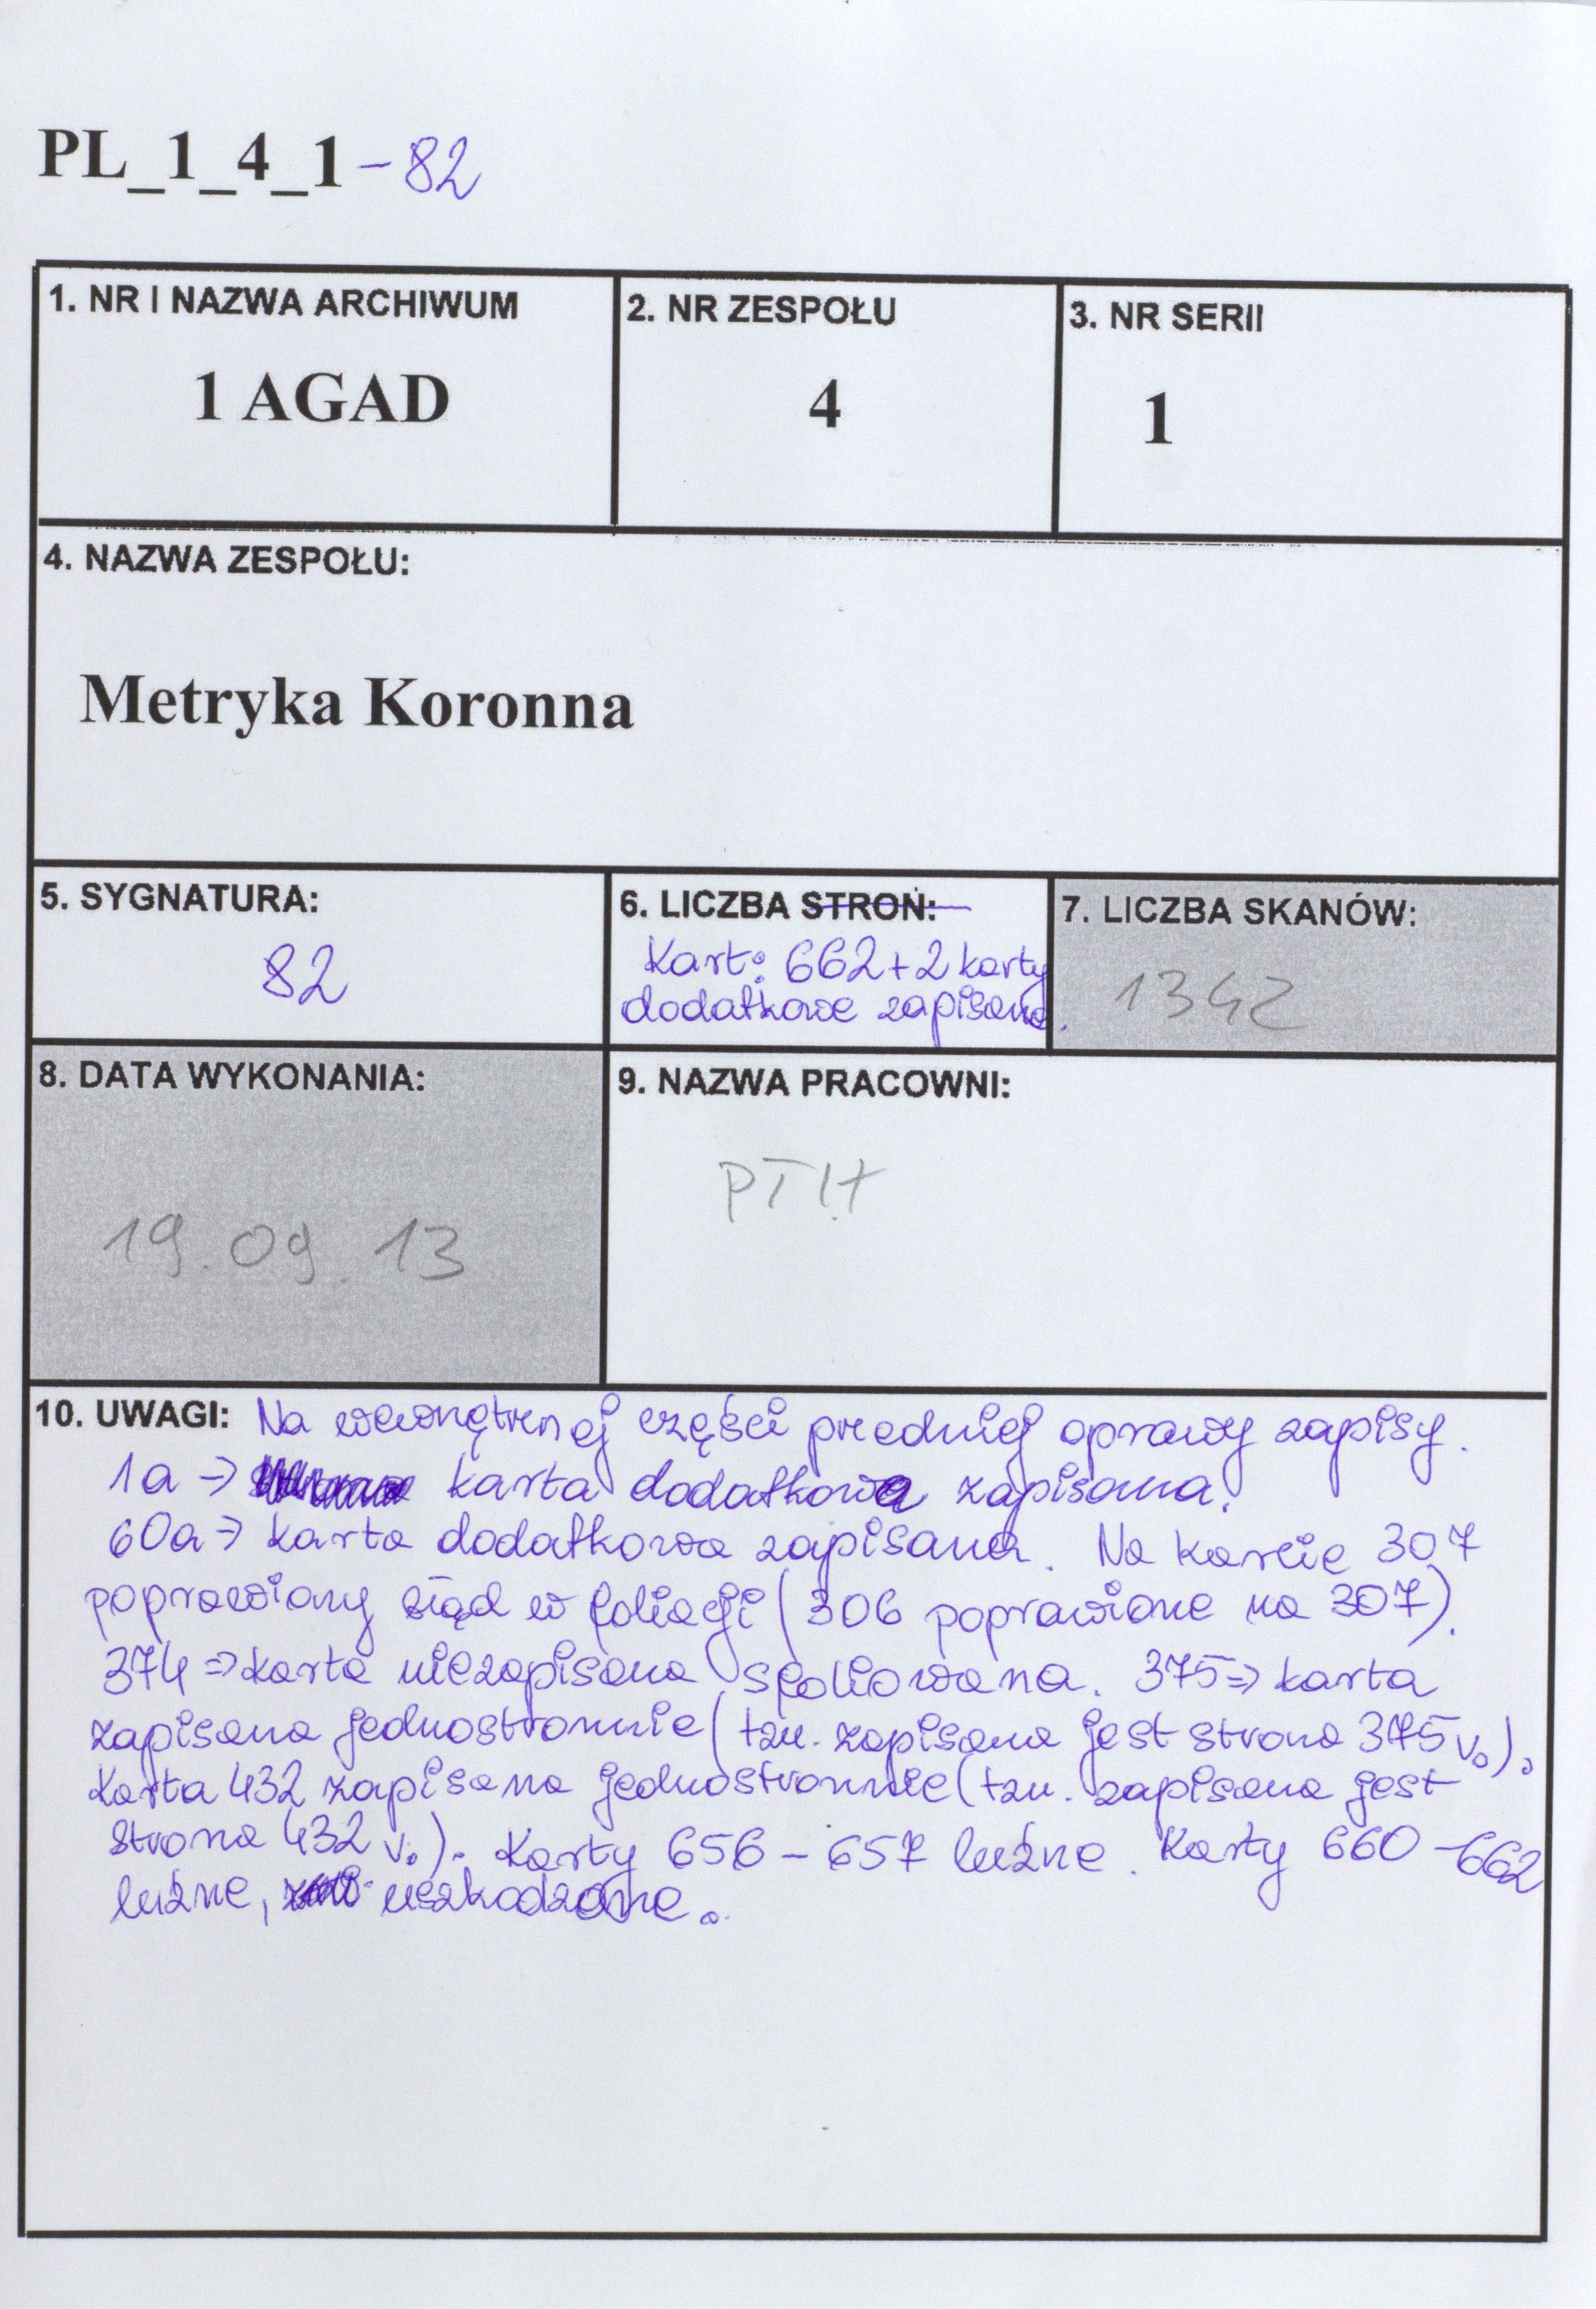 PL_1_4_1-82
1. NR I NAZWA ARCHIWUM
1 AGAD
2. NR ZESPOŁU
4
3. NR SERII
1
4. NAZWA ZESPOŁU:
Metryka Koronna
5. SYGNATURA:
82
6. LICZBA STRON:
Kart: 662+2 karty
dodatkowe zapisane.
7. LICZBA SKANÓW:
1342
8. DATA WYKONANIA:
19.09.13
9. NAZWA PRACOWNI:
10. UWAGI: Na wewnętrznej części przedniej oprawy zapisy.
1a → karta dodatkowa zapisana.
60a → karta dodatkowa zapisana. Na karcie 307
poprawiony błąd w foliacji (306 poprawione na 307).
374 ⇒ karta niezapisana sfoliowana. 375 ⇒ karta
zapisana jednostronnie (tzn. zapisana jest strona 375 v.).
Karta 432 zapisana jednostronnie (tzn. zapisana jest
strona 432 v.). Karty 656 - 657 luźne. Karty 660 - 662
luźne, uszkodzone.